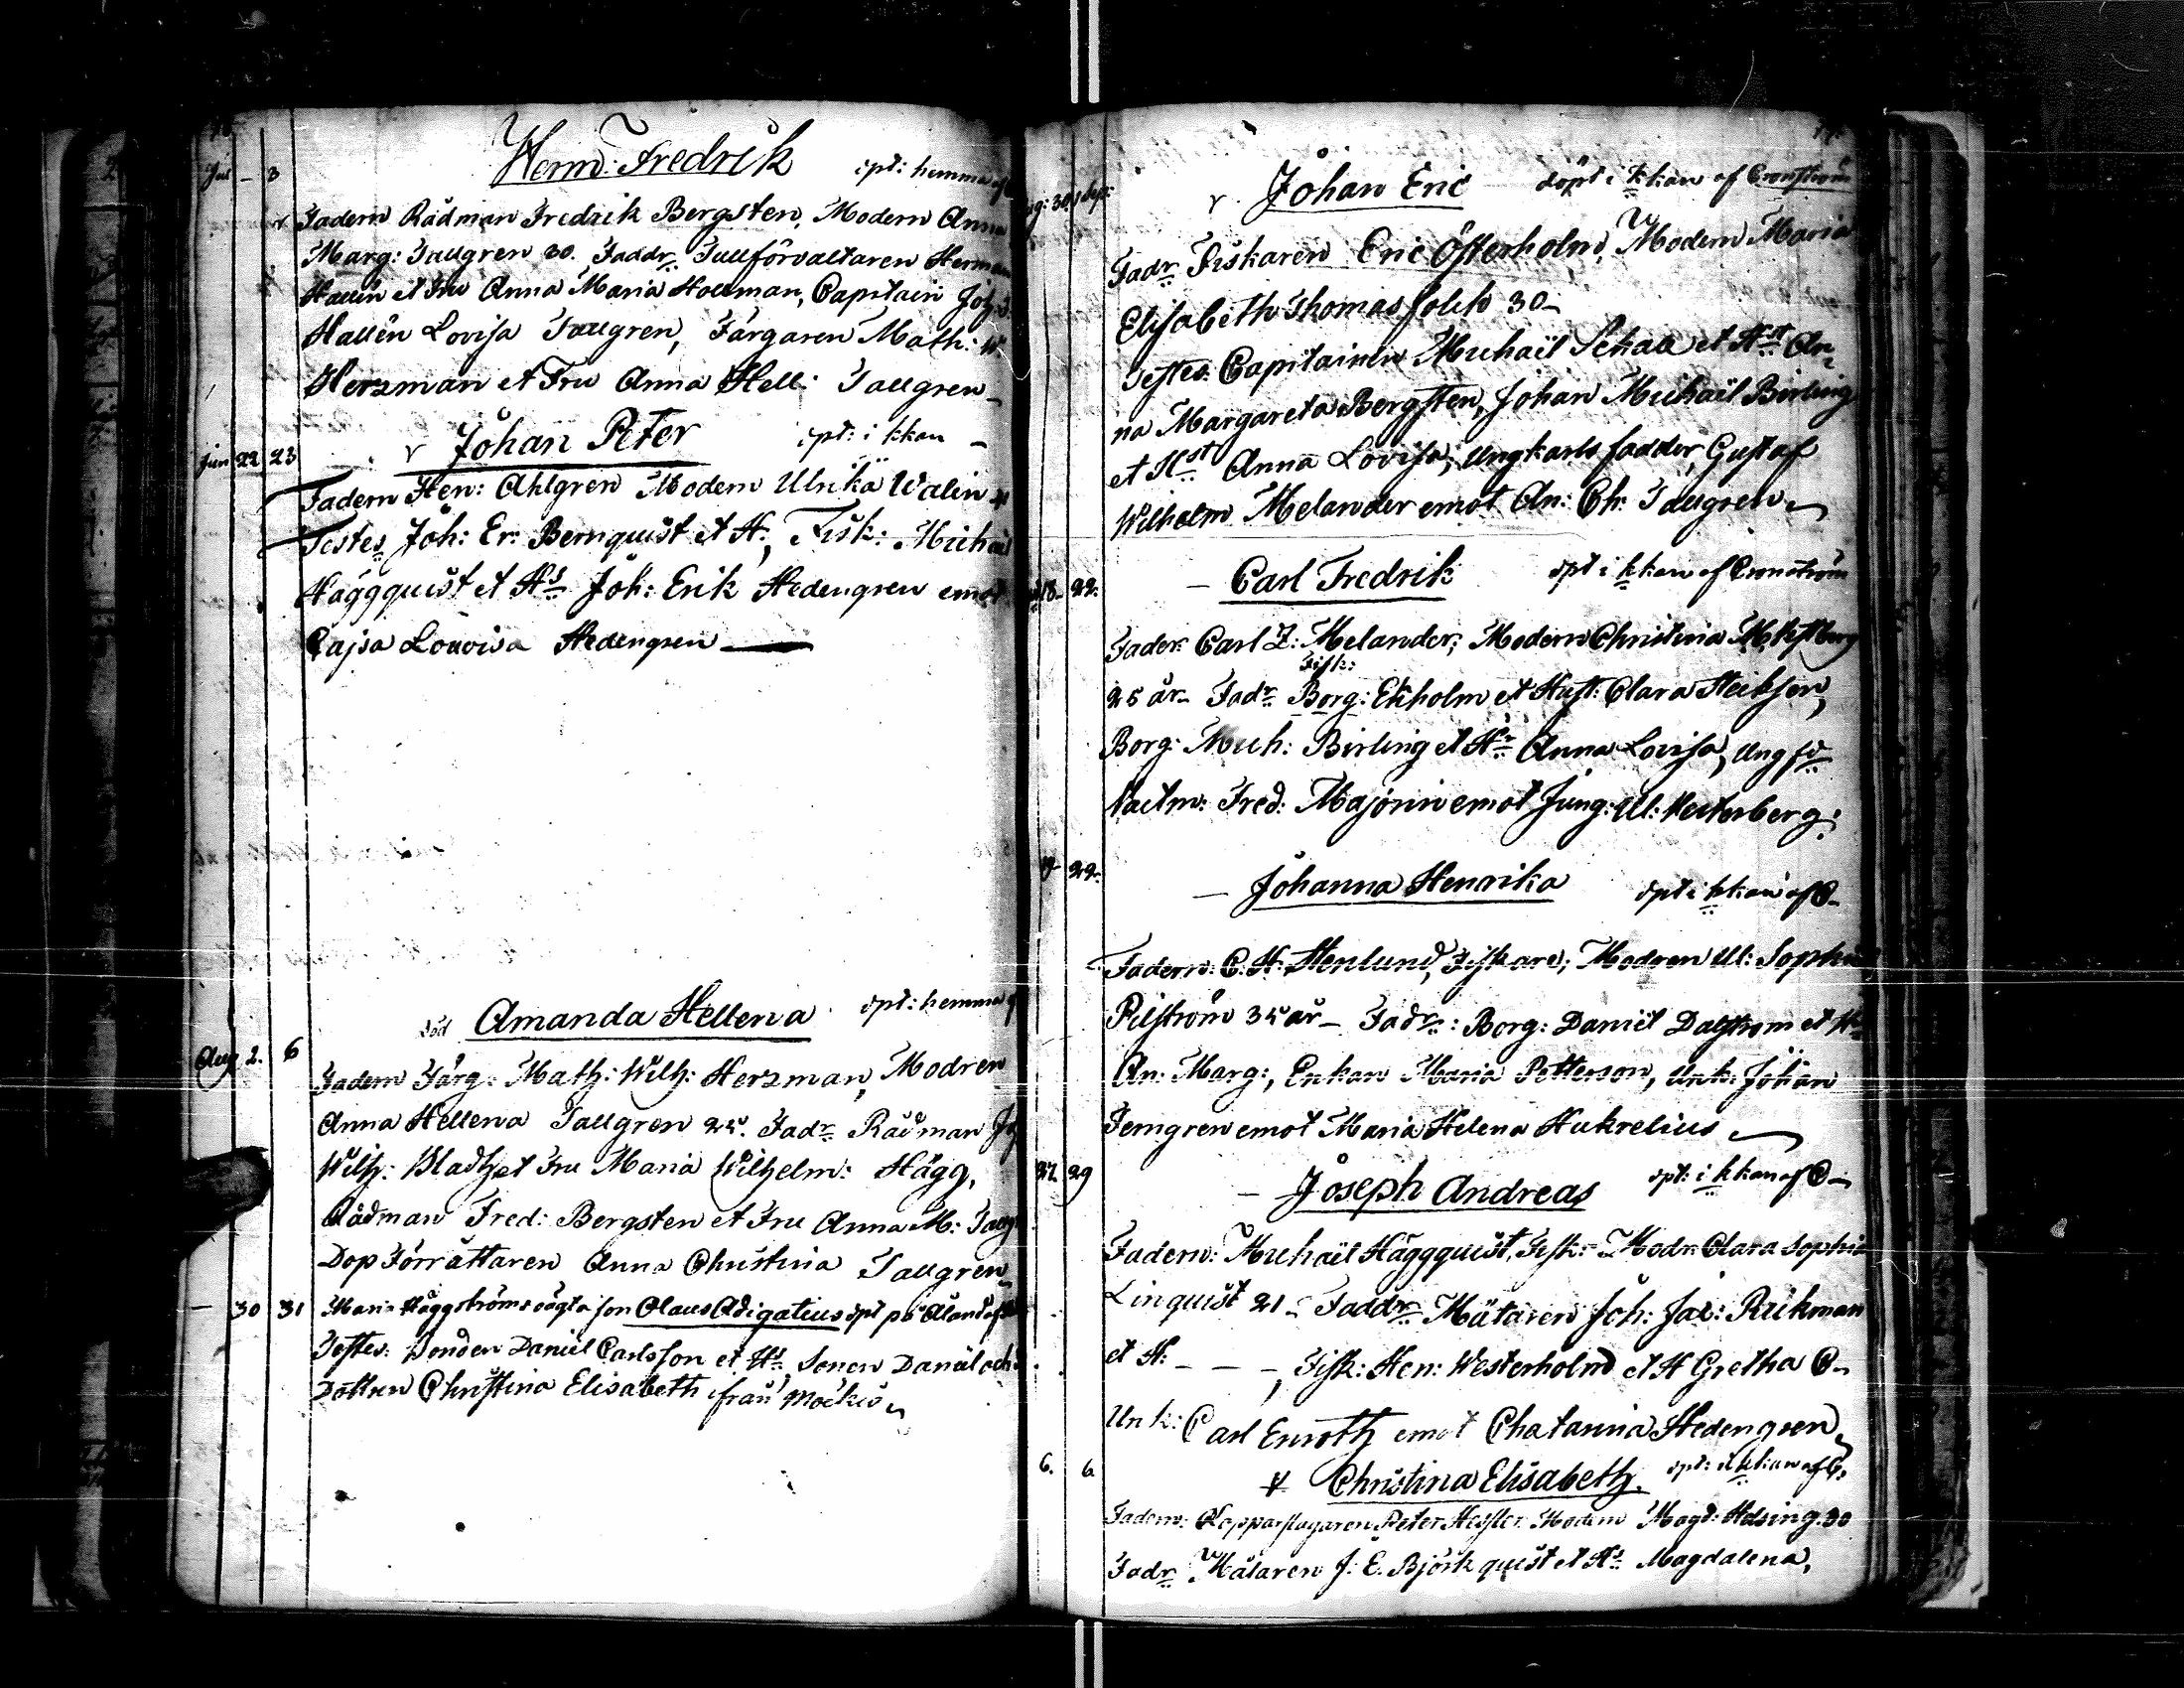 Jul - 3
Herm: Fredrik döpt: hemma af
Fadern Rådman Fredrik Bergsten, Modern Anna
Marg: Tallgren 30. Faddr: Tullförvaltaren Herman
Hallén et Fru Anna Maria Hollman, Capitain Joh:
Hallén Lovisa Tallgren, Färgaren Math: W:
Herzman et Fru Anna Hell: Tallgren
Jun 22 23 v Johan Peter dpt: i kkan
Fadern Hen: Ahlgren Modern Ulrika Walin
Testes Joh: Er: Bernquist et H., Fisk: Michaël
Häggquist et Hs Joh: Erik Hedengren emot
Cajsa Louvisa Hedengren
död Amanda Hellena dpt: hemma af
Aug 2. 6
Fadern Färg: Math: Wilh: Herzman, Modren
Anna Hellena Tallgren 25. Fadr Rådman Joh
Wilh: Bladh et Fru Maria Wilhelm: Hägg,
Rådman Fred: Bergsten et Fru Anna M: Tallg
Dop Förrättaren Anna Christina Tallgren
30 31 Maria Häggströms oägta son Claus Adigatius dpt på Åland af
Testes: Bonden Daniel Carlsson et Hs, Sonen Daniel och
Dottren Christina Elisabeth ifrån Möckiö
Aug: 30 1 Sep:
v. Johan Eric döpt i kkan af Cronström
Fadr Fiskaren Eric Österholm, Modern Maria
Elisabeth Thomasfolck 30
Testes: Capitainen Michaël Schale et Hst An-
na Margareta Bergsten, Johan Michaël Birling
et Hst Anna Lovisa, Ungkarls fadder Gustaf
Wilhelm Melander emot An: Ch: Tallgren
18 22. Carl Fredrik dpt i kkan af Cronström
Fader: Carl Z: Melander, Modern Christina M. Westberg
Fisk:
25 år Fadr Borg: Ekholm et Hust: Clara Heikson,
Borg: Mich: Birling et Hr Anna Lovisa, Ung fd
Vactm: Fred: Majorin emot Jung: Ul: Vesterberg
19 22. Johanna Henrika dpt i kkan af C
Fadern: C. H. Stenlund, Fiskare; Modren Ul: Sophia
Pilström 35 år Fadr: Borg: Daniel Dalström et H
An: Marg:, Enkan Maria Petterson, Unk: Johan
Ferngren emot Maria Helena Hukrelius
27. 29 Joseph Andreas dpt: i kkan af C
Fadern: Michaël Häggquist, Fisk: Modr: Clara Sophia
Linquist 21 Faddr Mätaren Joh: Jac: Rickman
et H: - - -, Fisk: Hen: Westerholm et H Gretha C
Unk: Carl Enroth emot Chatarina Hedengren
6. 6 Christina Elisabeth. dpt: i kkan af C.
Fadern: Kopparslagaren Peter Hessler Modern Magd: Helsing 30
Fadr Målaren J: E. Björkquist et Hs Magdalena,